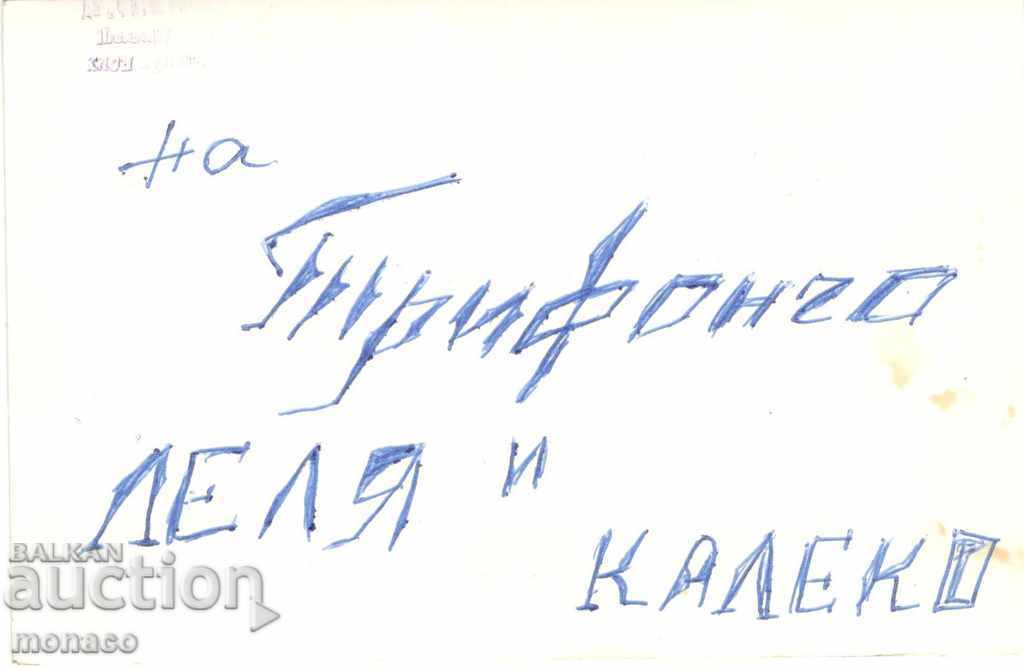 на
Трифончо
ЛЕЛЯ и
КАЛЕКО
BALKAN
auction
monaco